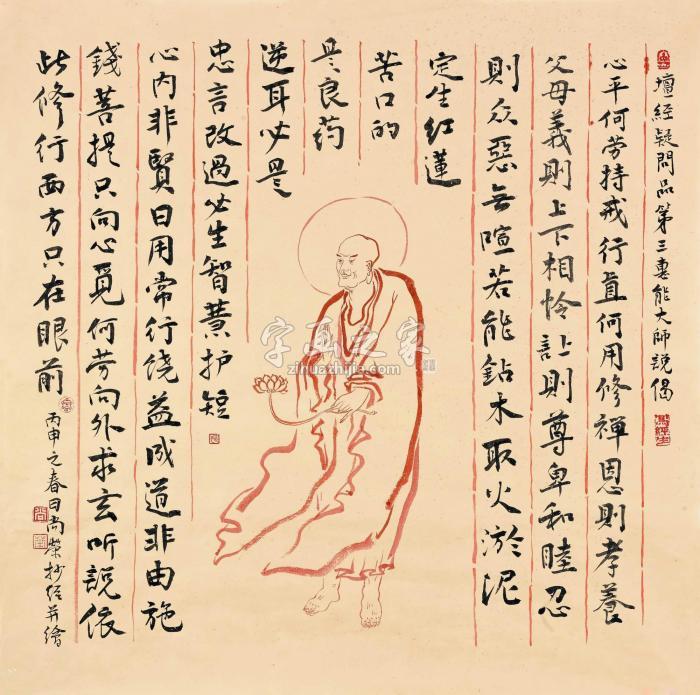 壇經疑問品第三惠能大師說偈
心平何劳持戒行直何用修禅恩則孝養
父母義則上下相怜讓則尊卑和睦忍
則众惡無喧若能鈷木取火淤泥
定生红蓮
苦口的
是良药
逆耳必是
忠言改過必生智慧护短
心内非賢日用常行饶益成道非由施
錢菩提只向心覓何劳向外求玄听說依
此修行西方只在眼前
丙申之春日尚榮抄经并繪
字画之家
zihuazhijia.com